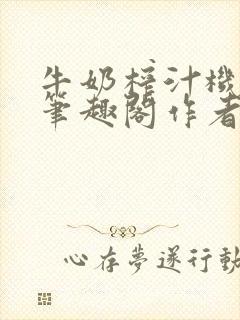 牛奶榨汁機
筆趣閣作者
心存夢遂行動